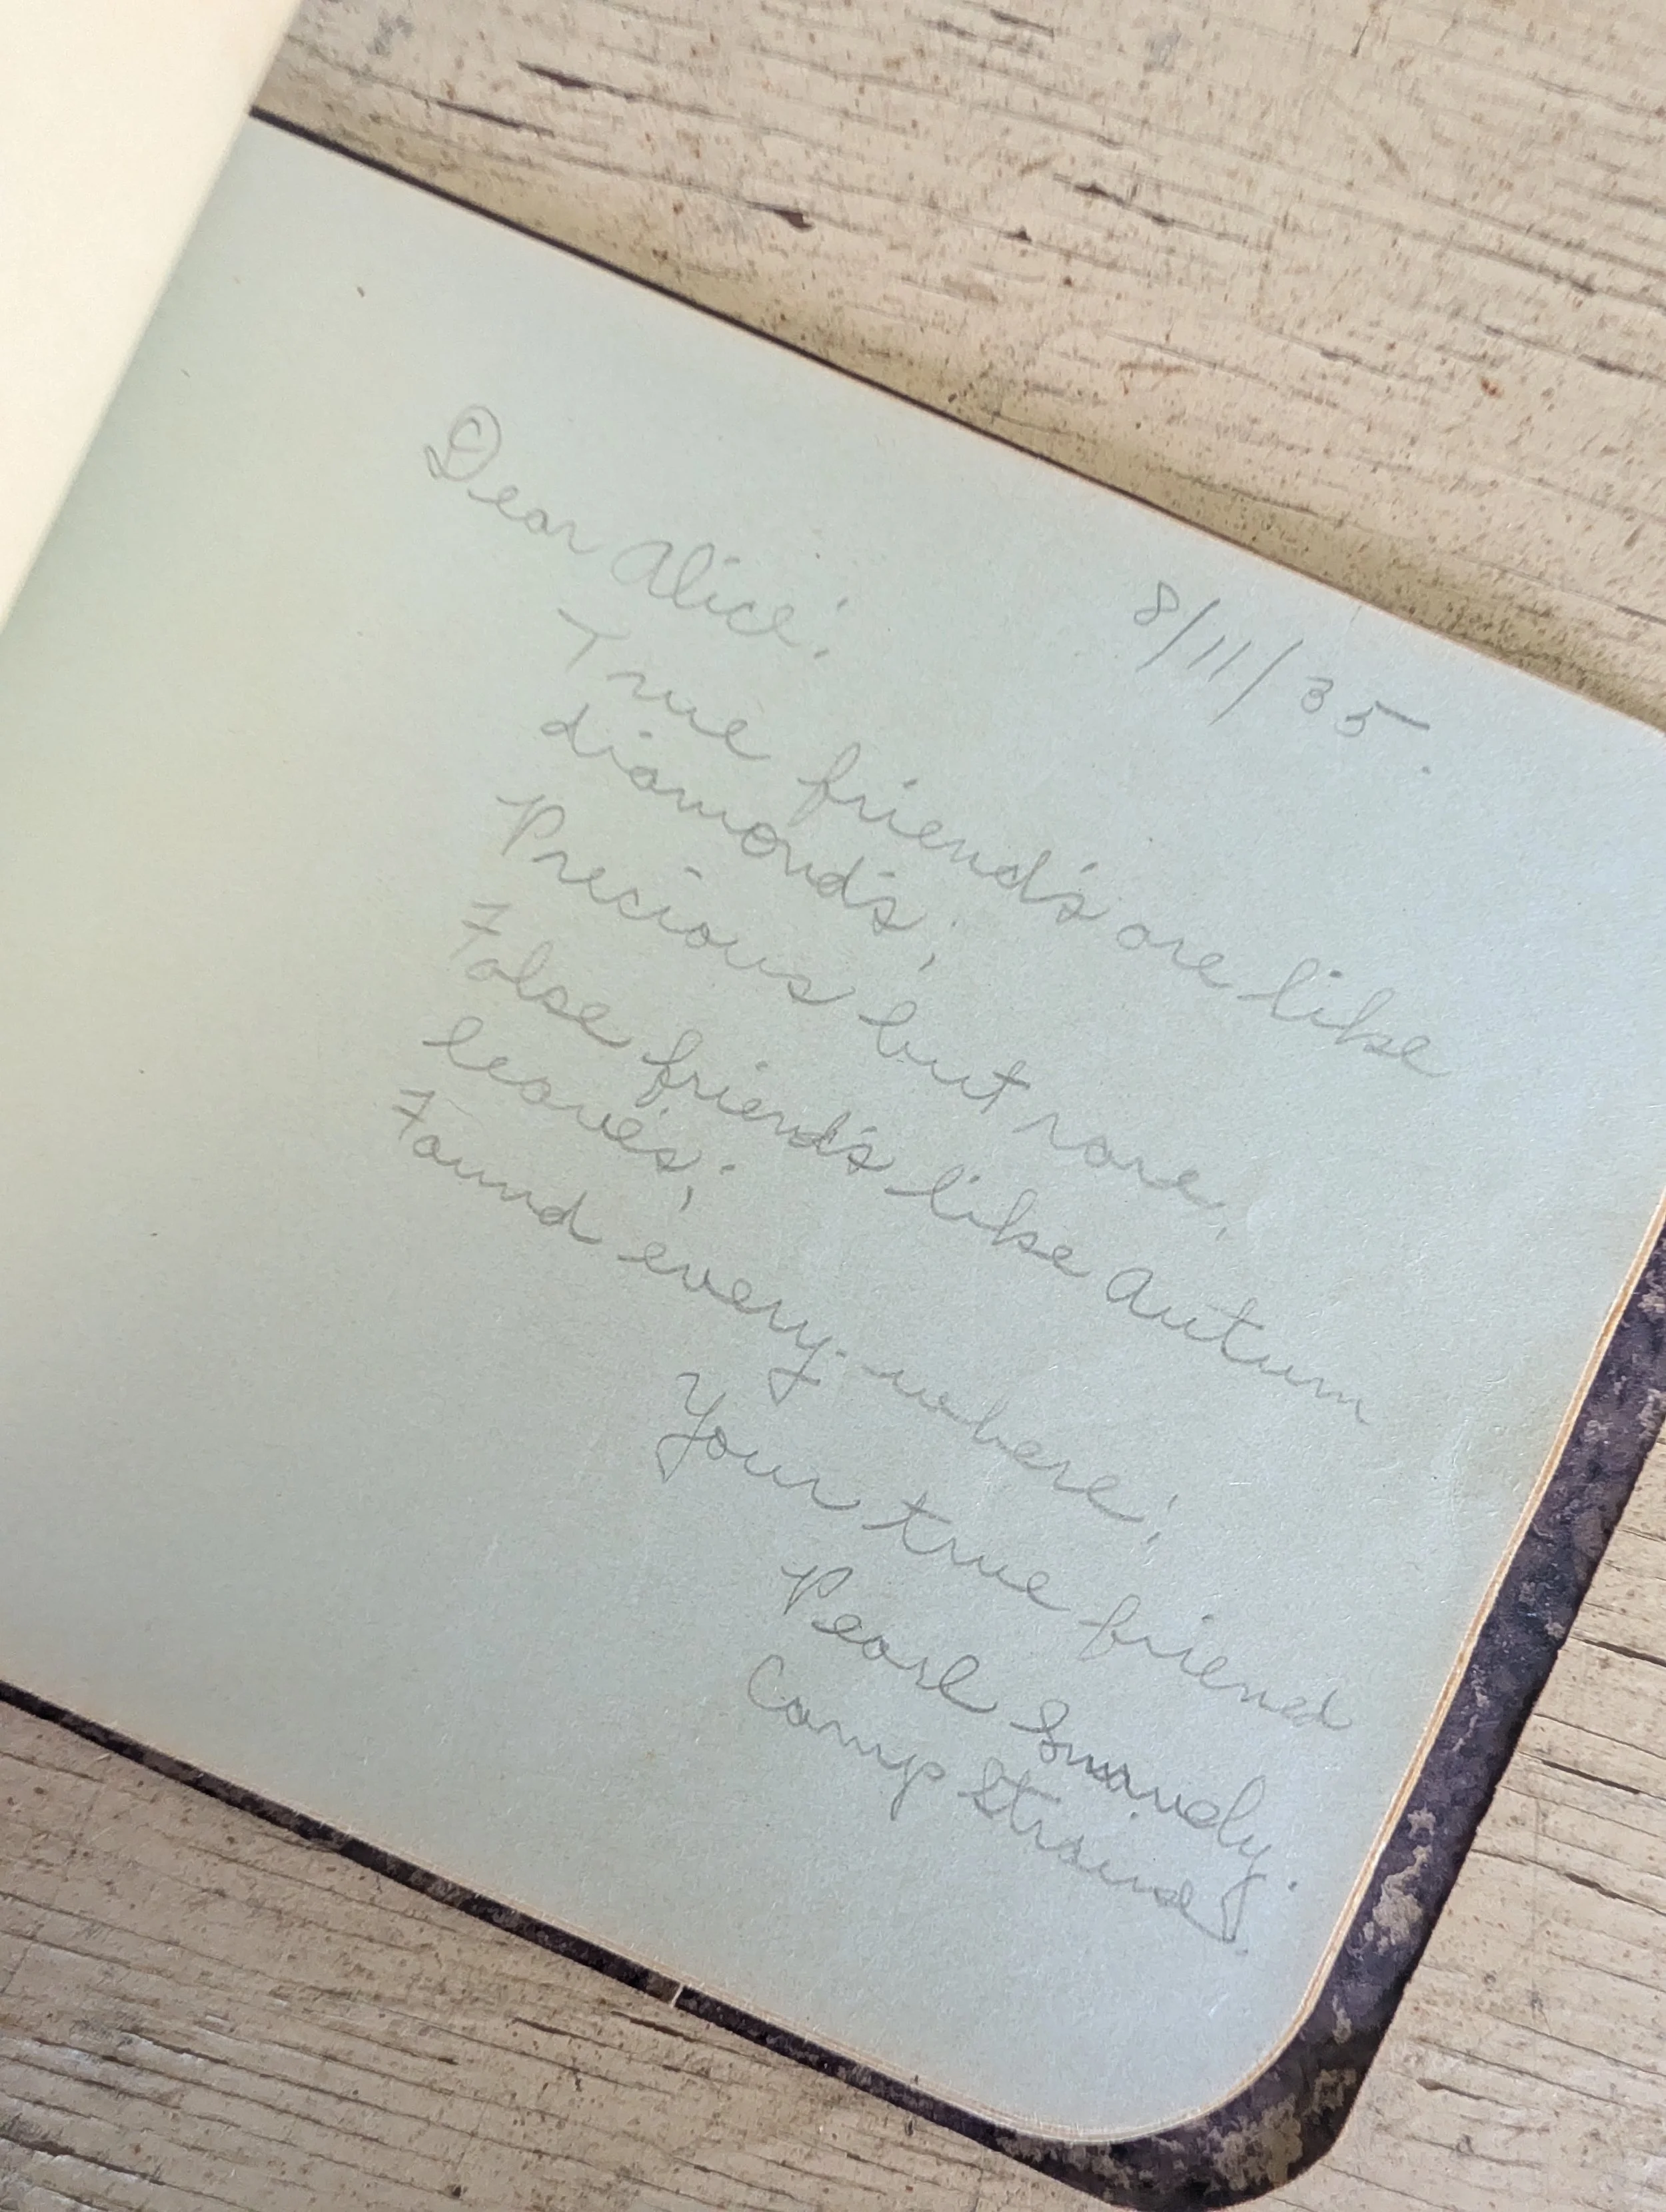 8/11/35.
Dear Alice:
True friend's are like
diamond's;
Precious but rare;
False friend's like Autum
leave's;
Found every-where;
Your true friend
Pearl
Camp Straind.